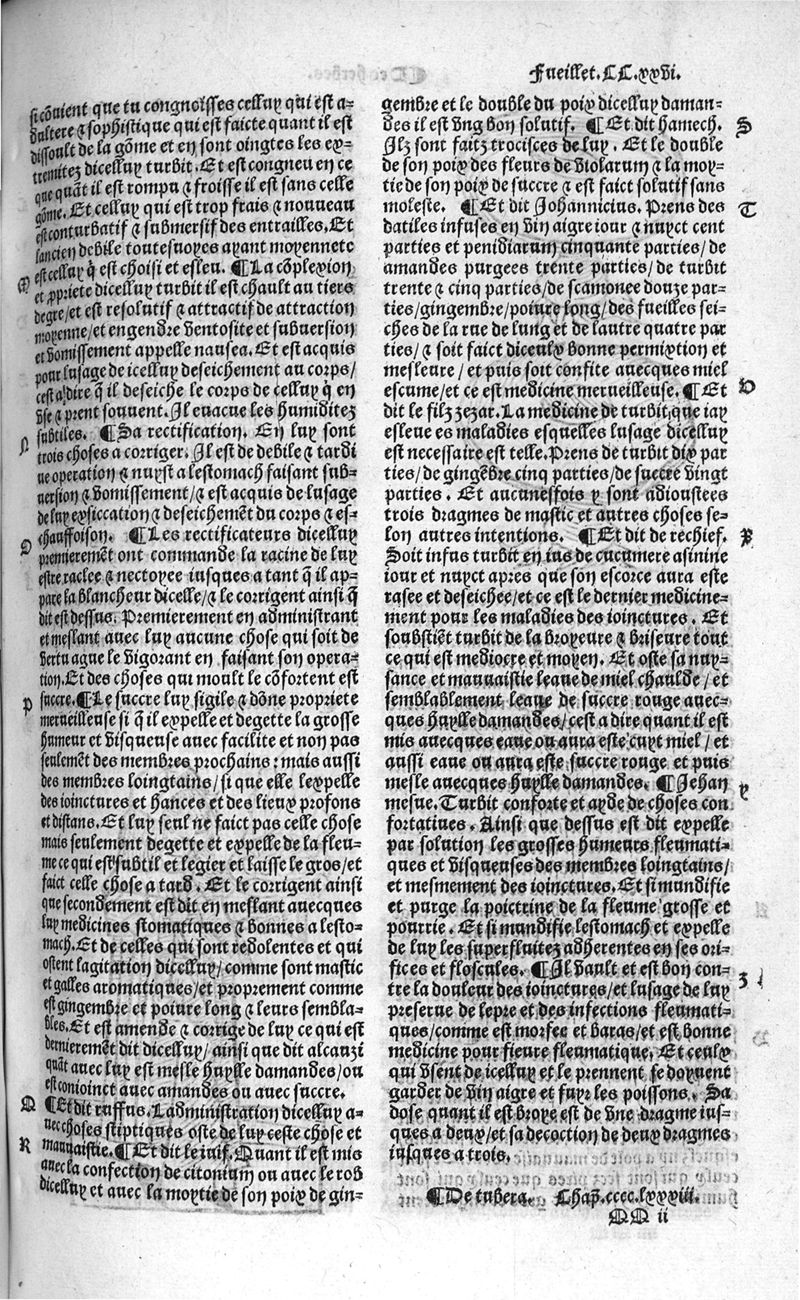 Fueillet.CC.xxvi.
si cõuient que tu congnoisses celluy qui est a-
dultere ⁊ sophistique qui est faicte quant il est
dissoult de la gõme et en sont oingtes les ex-
tremitez dicelluy turbit. Et est congneu en ce
que quãt il est rompu ⁊ froisse il est sans celle
gõme. Et celluy qui est trop frais ⁊ nouueau
est conturbatif ⁊ submersif des entrailles. Et
lancien debile toutesuoyes ayant moyennete
est celluy q̃ est choisi et esleu. ¶ La cõplexion
et ꝓpriete dicelluy turbit il est chault au tiers
degre/et est resolutif ⁊ attractif de attraction
moyenne/et engendre ventosite et subuersion
et vomissement appelle nausea. Et est acquis
pour lusage de icelluy deseichement au corps/
cest a dire q̃ il deseiche le corps de celluy q̃ en
vse ⁊ prent souuent. Il euacue les humiditez
subtiles. ¶ Sa rectification. En luy sont
trois choses a corriger. Il est de debile ⁊ tardi
ue operation ⁊ nuyst a lestomach faisant sub-
uersion ⁊ vomissement/⁊ est acquis de lusage
de luy exsiccation ⁊ deseichemẽt du corps ⁊ es-
chauffoison. ¶ Les rectificateurs dicelluy
premieremẽt ont commande la racine de luy
estre raclee ⁊ nectoyee iusques a tant q̃ il ap-
pare la blancheur dicelle/⁊ le corrigent ainsi q̃
dit est dessus. Premierement en administrant
et meslant auec luy aucune chose qui soit de
vertu ague le vigorant en faisant son opera-
tion. Et des choses qui moult le cõfortent est
succre. ¶ Le succre luy sigile ⁊ dõne propriete
merueilleuse si q̃ il expelle et degette la grosse
humeur et visqueuse auec facilite et non pas
seulemẽt des membres prochains: mais aussi
des membres loingtains/si que elle lexpelle
des ioinctures et hances et des lieux profons
et distans. Et luy seul ne faict pas celle chose
mais seulement degette et expelle de la fleu-
me ce qui est subtil et legier et laisse le gros/et
faict celle chose a tard. Et le corrigent ainsi
que secondement est dit en meslant auecques
luy medicines stomatiques ⁊ bonnes a lesto-
mach. Et de celles qui sont redolentes et qui
ostent lagitation dicelluy/comme sont mastic
et galles aromatiques/et proprement comme
est gingembre et poiure long ⁊ leurs sembla-
bles. Et est amende ⁊ corrige de luy ce qui est
dernieremẽt dit dicelluy/ainsi que dit alcanzi
quãt auec luy est mesle huylle damandes/ou
est conioinct auec amandes ou auec succre.
¶ Et dit ruffus. Ladministration dicelluy a-
uec choses stiptiques oste de luy ceste chose et
mauuaistie. ¶ Et dit le iuif. Quant il est mis
auec la confection de citonium ou auec le rob
dicelluy et auec la moytie de son poix de gin-
M
N
O
P
Q
R
gembre et le double du poix dicelluy daman-
des il est vng bon solutif. ¶ Et dit hamech.
Ilz sont faitz trocisces de luy. Et le double
de son poix des fleurs de violarum ⁊ la moy-
tie de son poix de succre ⁊ est faict solutif sans
moleste. ¶ Et dit Johannicius. Prens des
datiles infuses en vin aigre iour ⁊ nuyct cent
parties et penidiarum cinquante parties/de
amandes purgees trente parties/de turbit
trente ⁊ cinq parties/de scamonee douze par-
ties/gingembre/poiure long/des fueilles sei-
ches de la rue de lung et de lautre quatre par
ties/⁊ soit faict diceulx bonne permixtion et
mesleure/et puis soit confite auecques miel
escume/et ce est medicine merueilleuse. ¶ Et
dit le filz zezar. La medicine de turbit que iay
esleue es maladies esquelles lusage dicelluy
est necessaire est telle. Prens de turbit dix par
ties/de gingẽbre cinq parties/de succre vingt
parties. Et aucunesfois y sont adioustees
trois dragmes de mastic et autres choses se-
lon autres intentions. ¶ Et dit de rechief.
Soit infus turbit en ius de cucumere asinine
iour et nuyct apres que son escorce aura este
rasee et deseichee/et ce est le dernier medicine-
ment pour les maladies des ioinctures. Et
soubstiẽt turbit de la broyeure ⁊ briseure tout
ce qui est mediocre et moyen. Et oste sa nuy-
sance et mauuaistie leaue de miel chaulde/et
semblablement leaue de succre rouge auec-
ques huylle damandes/cest a dire quant il est
mis auecques eaue ou aura este cuyt miel/et
aussi eaue ou aura este succre rouge et puis
mesle auecques huylle damandes. ¶ Jehan
mesue. Turbit conforte et ayde de choses con
fortatiues. Ainsi que dessus est dit expelle
par solution les grosses humeurs fleumati-
ques et visqueuses des membres loingtains/
et mesmement des ioinctures. Et si mundifie
et purge la poictrine de la fleume grosse et
pourrie. Et si mundifie lestomach et expelle
de luy les superfluitez adherentes en ses ori-
fices et floscules. ¶ Il vault et est bon con-
tre la douleur des ioinctures/et lusage de luy
preserue de lepre et des infections fleumati-
ques/comme est morfee et baras/et est bonne
medicine pour fieure fleumatique. Et ceulx
qui vsent de icelluy et le prennent se doyuent
garder de vin aigre et fuyr les poissons. Sa
dose quant il est broye est de vne dragme ius-
ques a deux/et sa decoction de deux dragmes
iusques a trois.
¶ De tubera. Chap̃. cccc.lxxxiii.
MM ii
S
T
V
X
y
z